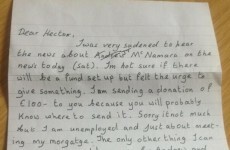 Dear Hector,
I was very saddened to hear
the news about McNamara on the
news today (Sat). I'm not sure if there
will be a fund set up but felt the urge to
give something. I am sending a donation of
£100- to you because you will probably
know where to send it. Sorry it's not much
but I am unemployed and just about meet-
ing my mortgage. The only other thing I can